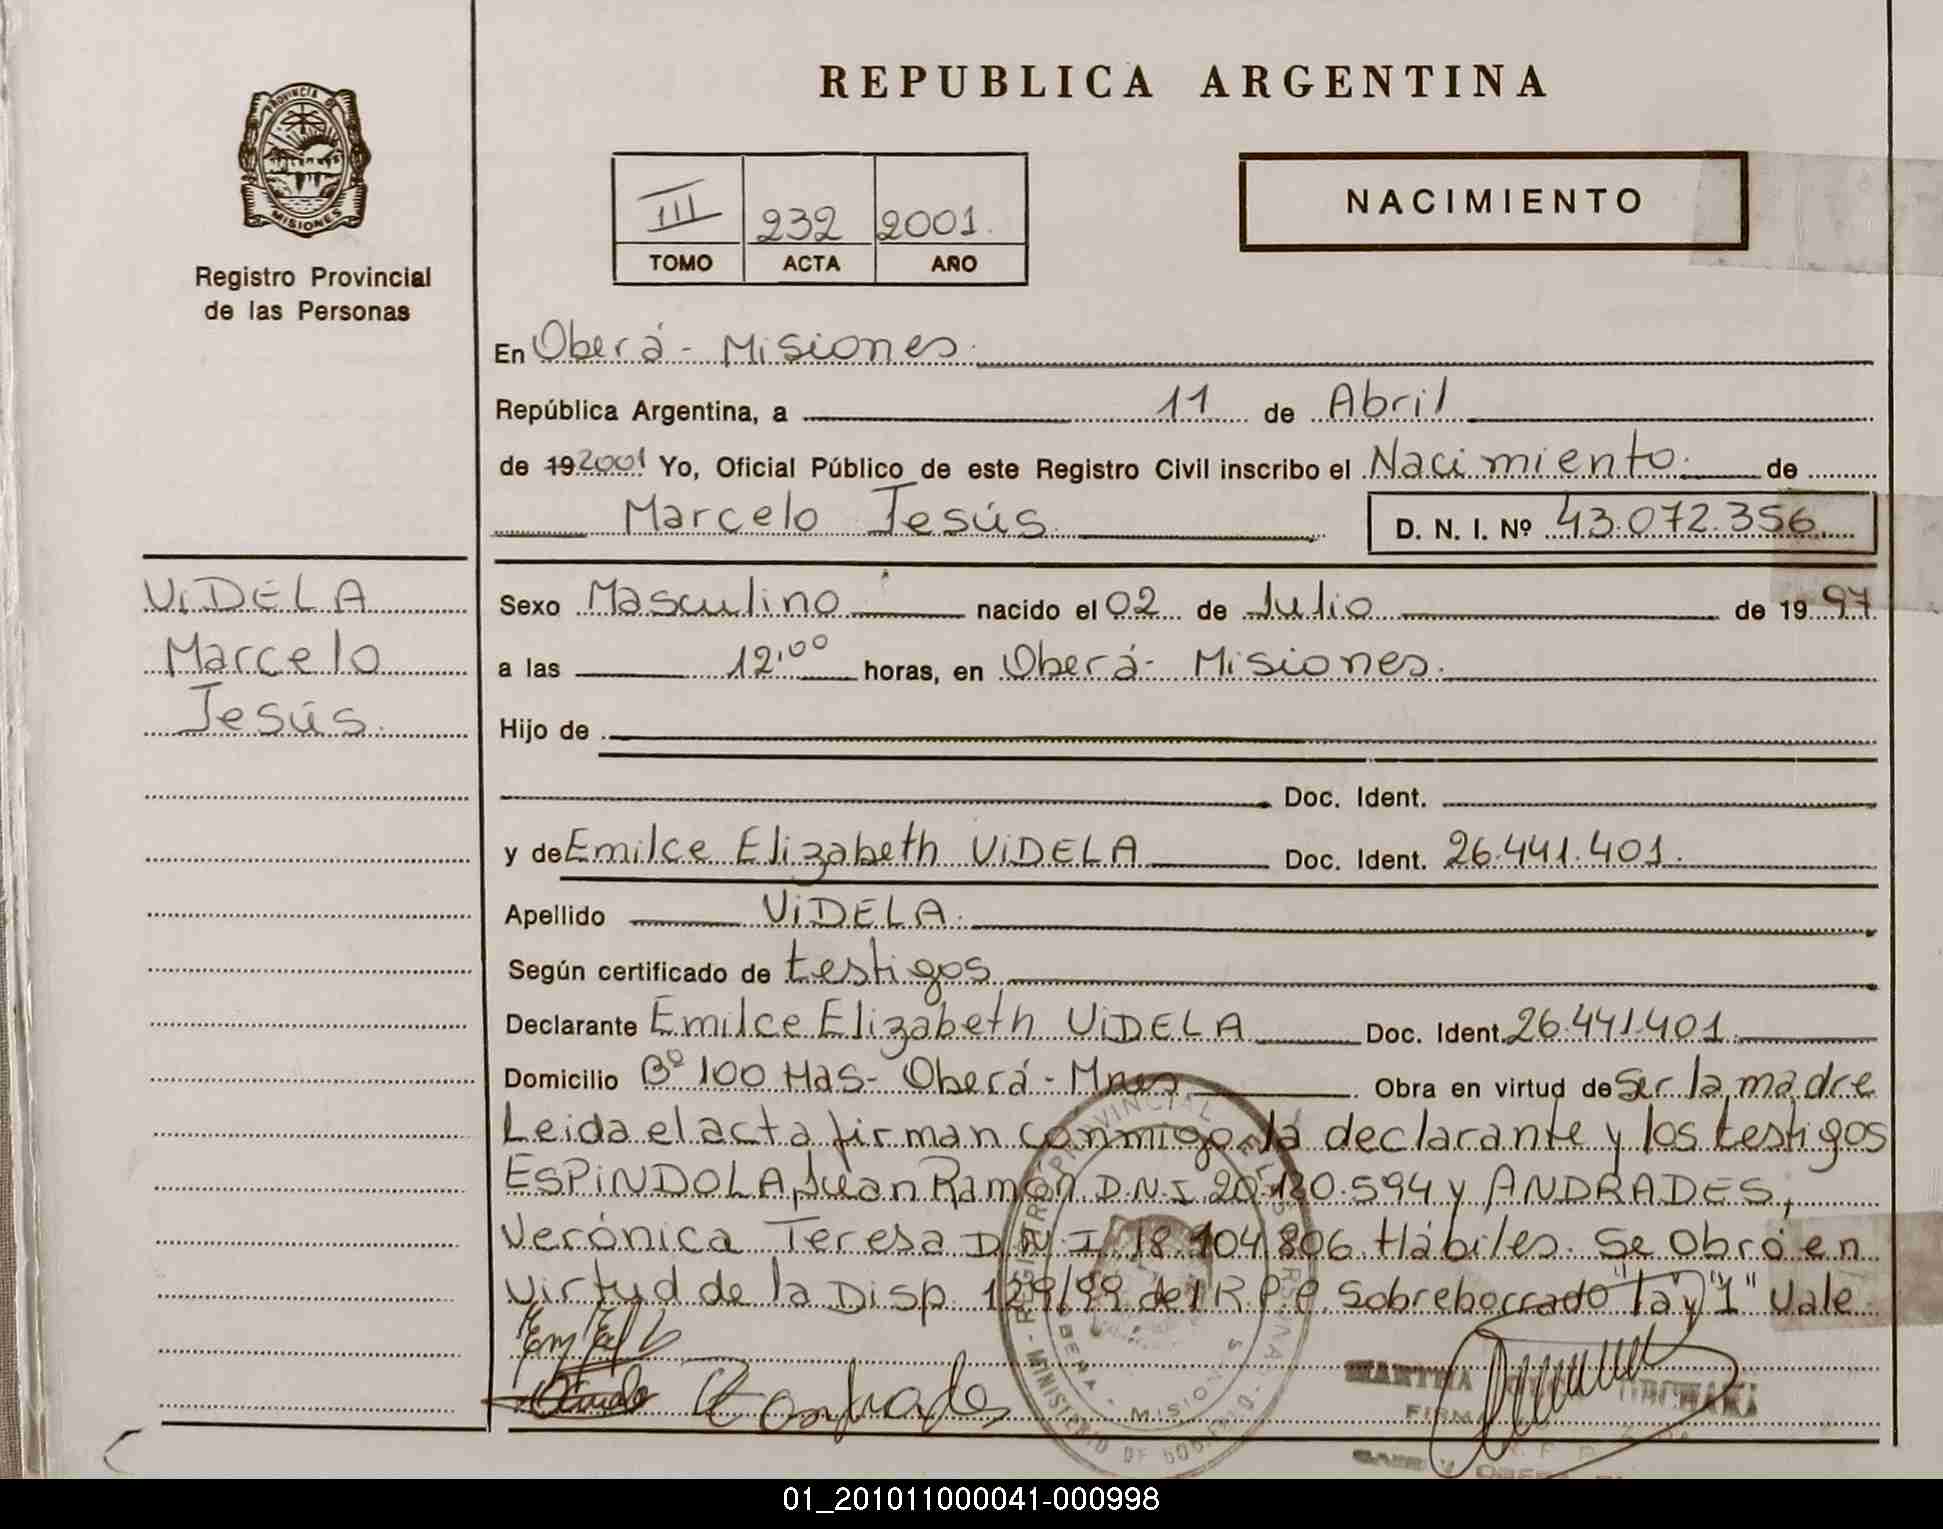 REPUBLICA ARGENTINA
PROVINCIA DE
MISIONES
Registro Provincial
de las Personas
III 232 2001.
TOMO ACTA AÑO
NACIMIENTO
En Oberá - Misiones.
República Argentina, a 11 de Abril
de 19 2001 Yo, Oficial Público de este Registro Civil inscribo el Nacimiento. de
Marcelo Jesús D. N. I. Nº 43.072.356
ViDELA
Marcelo
Jesús.
Sexo Masculino nacido el 02 de Julio de 19 97
a las 12.00 horas, en Oberá - Misiones.
Hijo de
Doc. Ident.
y de Emilce Elizabeth ViDELA Doc. Ident. 26.441.401.
Apellido ViDELA.
Según certificado de testigos
Declarante Emilce Elizabeth ViDELA Doc. Ident. 26.441.401.
Domicilio Bº 100 Has - Oberá - Mnes Obra en virtud de Ser la madre
Leida el acta firman conmigo la declarante y los testigos
ESPiNDOLA, Juan Ramón D.N.I. 20.120.594 y ANDRADES,
Verónica Teresa D.N.I. 18.104.806 Hábiles. Se obró en
virtud de la Disp. 129/99 del R.P.P. Sobreborrado "Ta" y "1" Vale.
REGISTRO PROVINCIAL DE LAS PERSONAS
MINISTERIO DE GOBIERNO
MISIONES
MARTHA
FIRMA
01_201011000041-000998